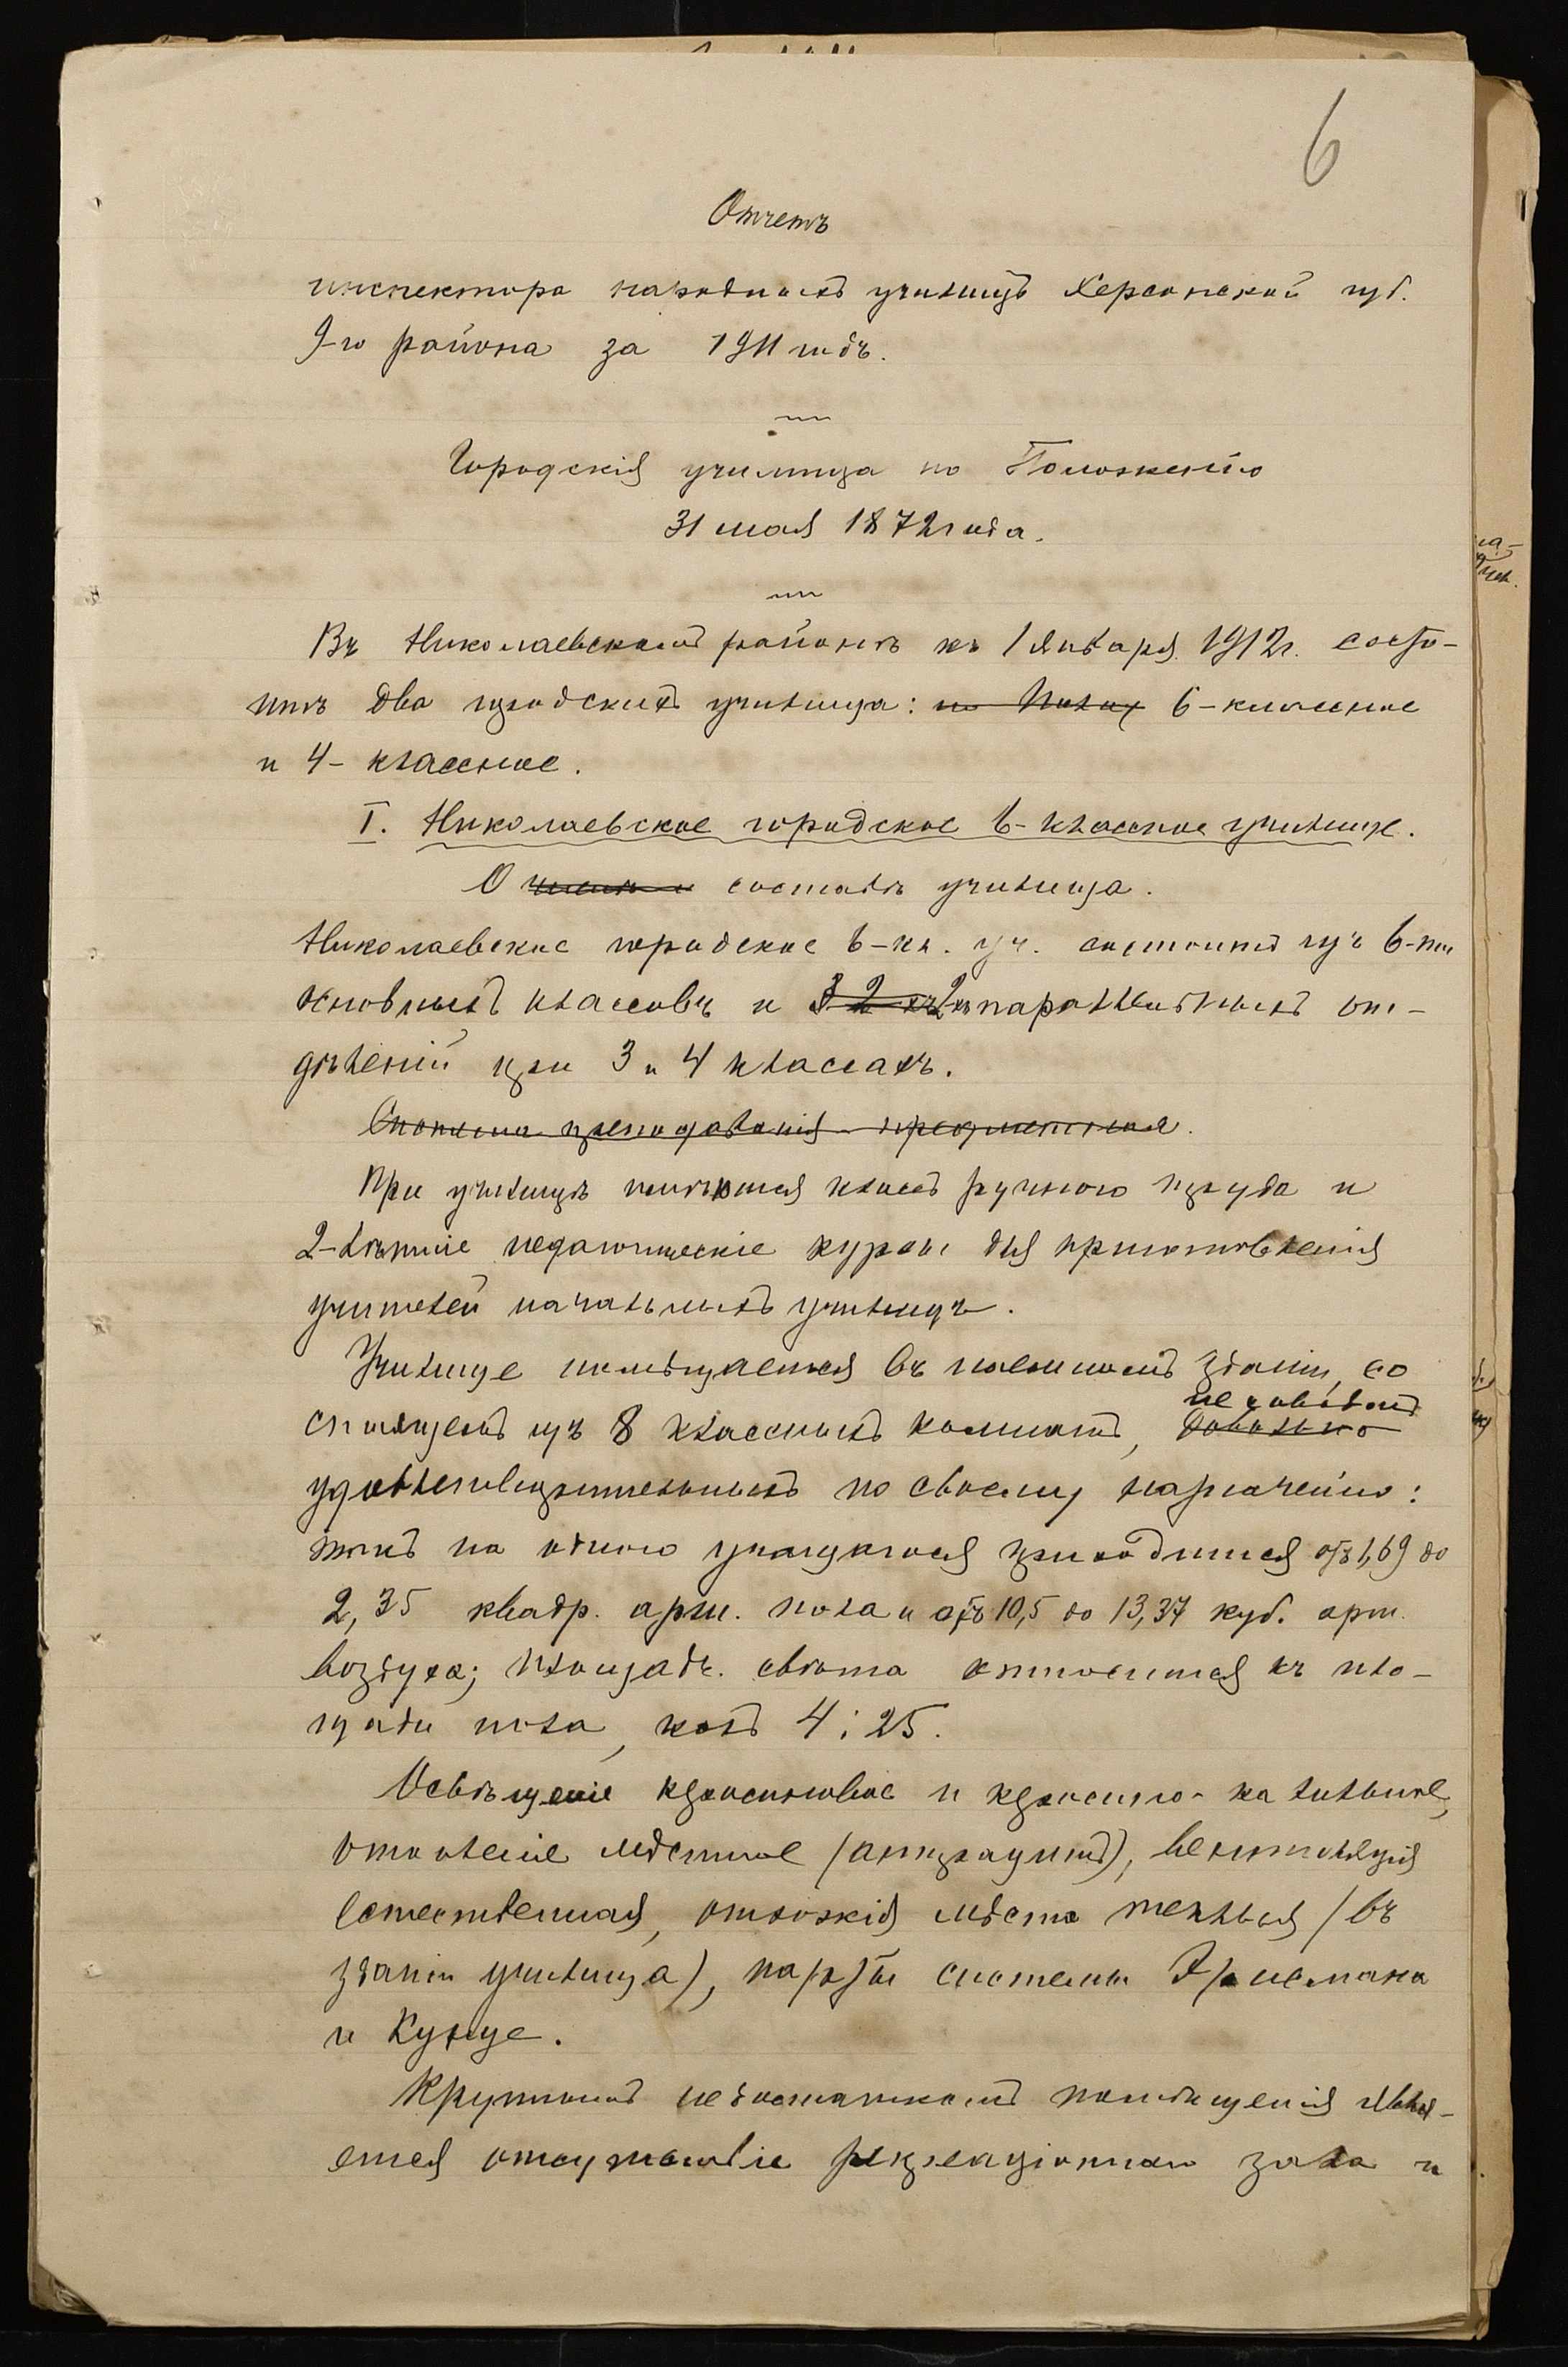 6
Отчетъ
инспектора народныхъ училищъ Херсонской губ.
9-го района за 1911 годъ.
Городскія училища по Положенію
31 мая 1872 года.
Въ Николаевскомъ районѣ къ 1 Января 1912 г. состо-
итъ два городскихъ училища: 6-классное
и 4-классное.
I. Николаевское городское 6-классное училище.
О составѣ училища.
Николаевское городское 6-кл. уч. состоитъ изъ 6-ти
основныхъ классовъ и 2-хъ параллельныхъ от-
дѣленій при 3 и 4 классахъ.
преподаванія предметная.
При училищѣ имѣются классъ ручного труда и
2-лѣтніе педагогическіе курсы для приготовленія
учителей начальныхъ училищъ.
Училище помѣщается въ наемномъ зданіи, со
стоящемъ изъ 8 классныхъ комнатъ, не совсѣмъ довольно
удовлетворительныхъ по своему назначенію:
такъ на одного учащагося приходится отъ 1,69 до
2,35 квадр. арш. пола и отъ 10,5 до 13,37 куб. арш.
воздуха; площадь свѣта относится къ пло-
щади пола, какъ 4:25.
Освѣщеніе керосиновое и керосино-калильное,
отопленіе мѣстное (антрацитъ), вентиляція
естественная, отхожія мѣста теплыя (въ
зданіи училища), парты системы Эрисмана
и Кунце.
Крупнымъ недостаткомъ помѣщенія явля-
ется отсутствіе рекреаціоннаго зала и